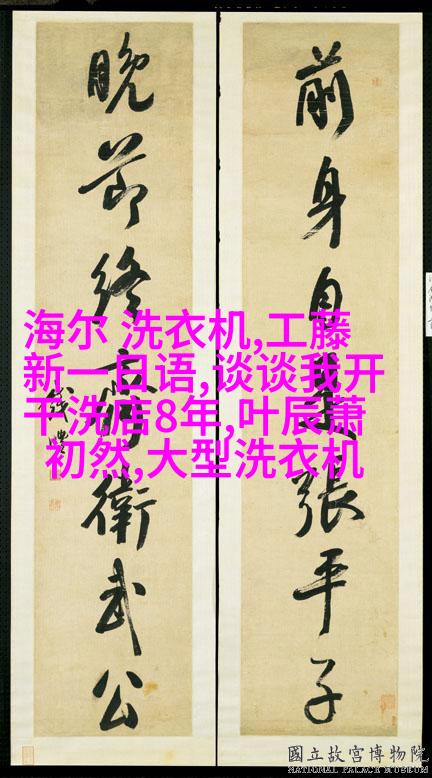 前身自張平子
晚節終衛武公
海尔 洗衣机,工藤
新一日语,谈谈我开
干洗店8年,叶辰萧
初然,大型洗衣机
國立故宮博物院
NATIONAL PALACE MUSEUM